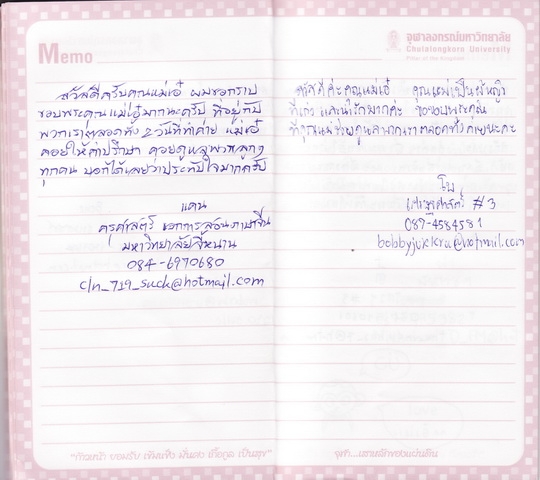 Memo
สวัสดีครับคุณแม่เอ๋ ผมขอกราบ
ขอบพระคุณแม่เอ๋มากนะครับ ที่อยู่กับ
พวกเราตลอดทั้ง 2 วันที่ทำค่าย แม่เอ๋
คอยให้คำปรึกษา คอยดูแลพวกลูกๆ
ทุกคน บอกได้เลยว่าประทับใจมากครับ
แคน
ครุศาสตร์ เอกการสอนภาษาจีน
มหาวิทยาลัยจีหนาน
084-6970680
cln_719_suck@hotmail.com
จุฬาลงกรณ์มหาวิทยาลัย
Chulalongkorn University
Pillar of the Kingdom
สวัสดีค่ะคุณแม่เอ๋ คุณแม่เป็นผู้หญิง
ที่เก่ง และน่ารักมากค่ะ ขอขอบพระคุณ
ที่คุณแม่ช่วยดูแลพวกเราตลอดทั้งค่ายนะคะ
โบ
เศรษฐศาสตร์ #3
089-4584581
bobbyjukkru@hotmail.com